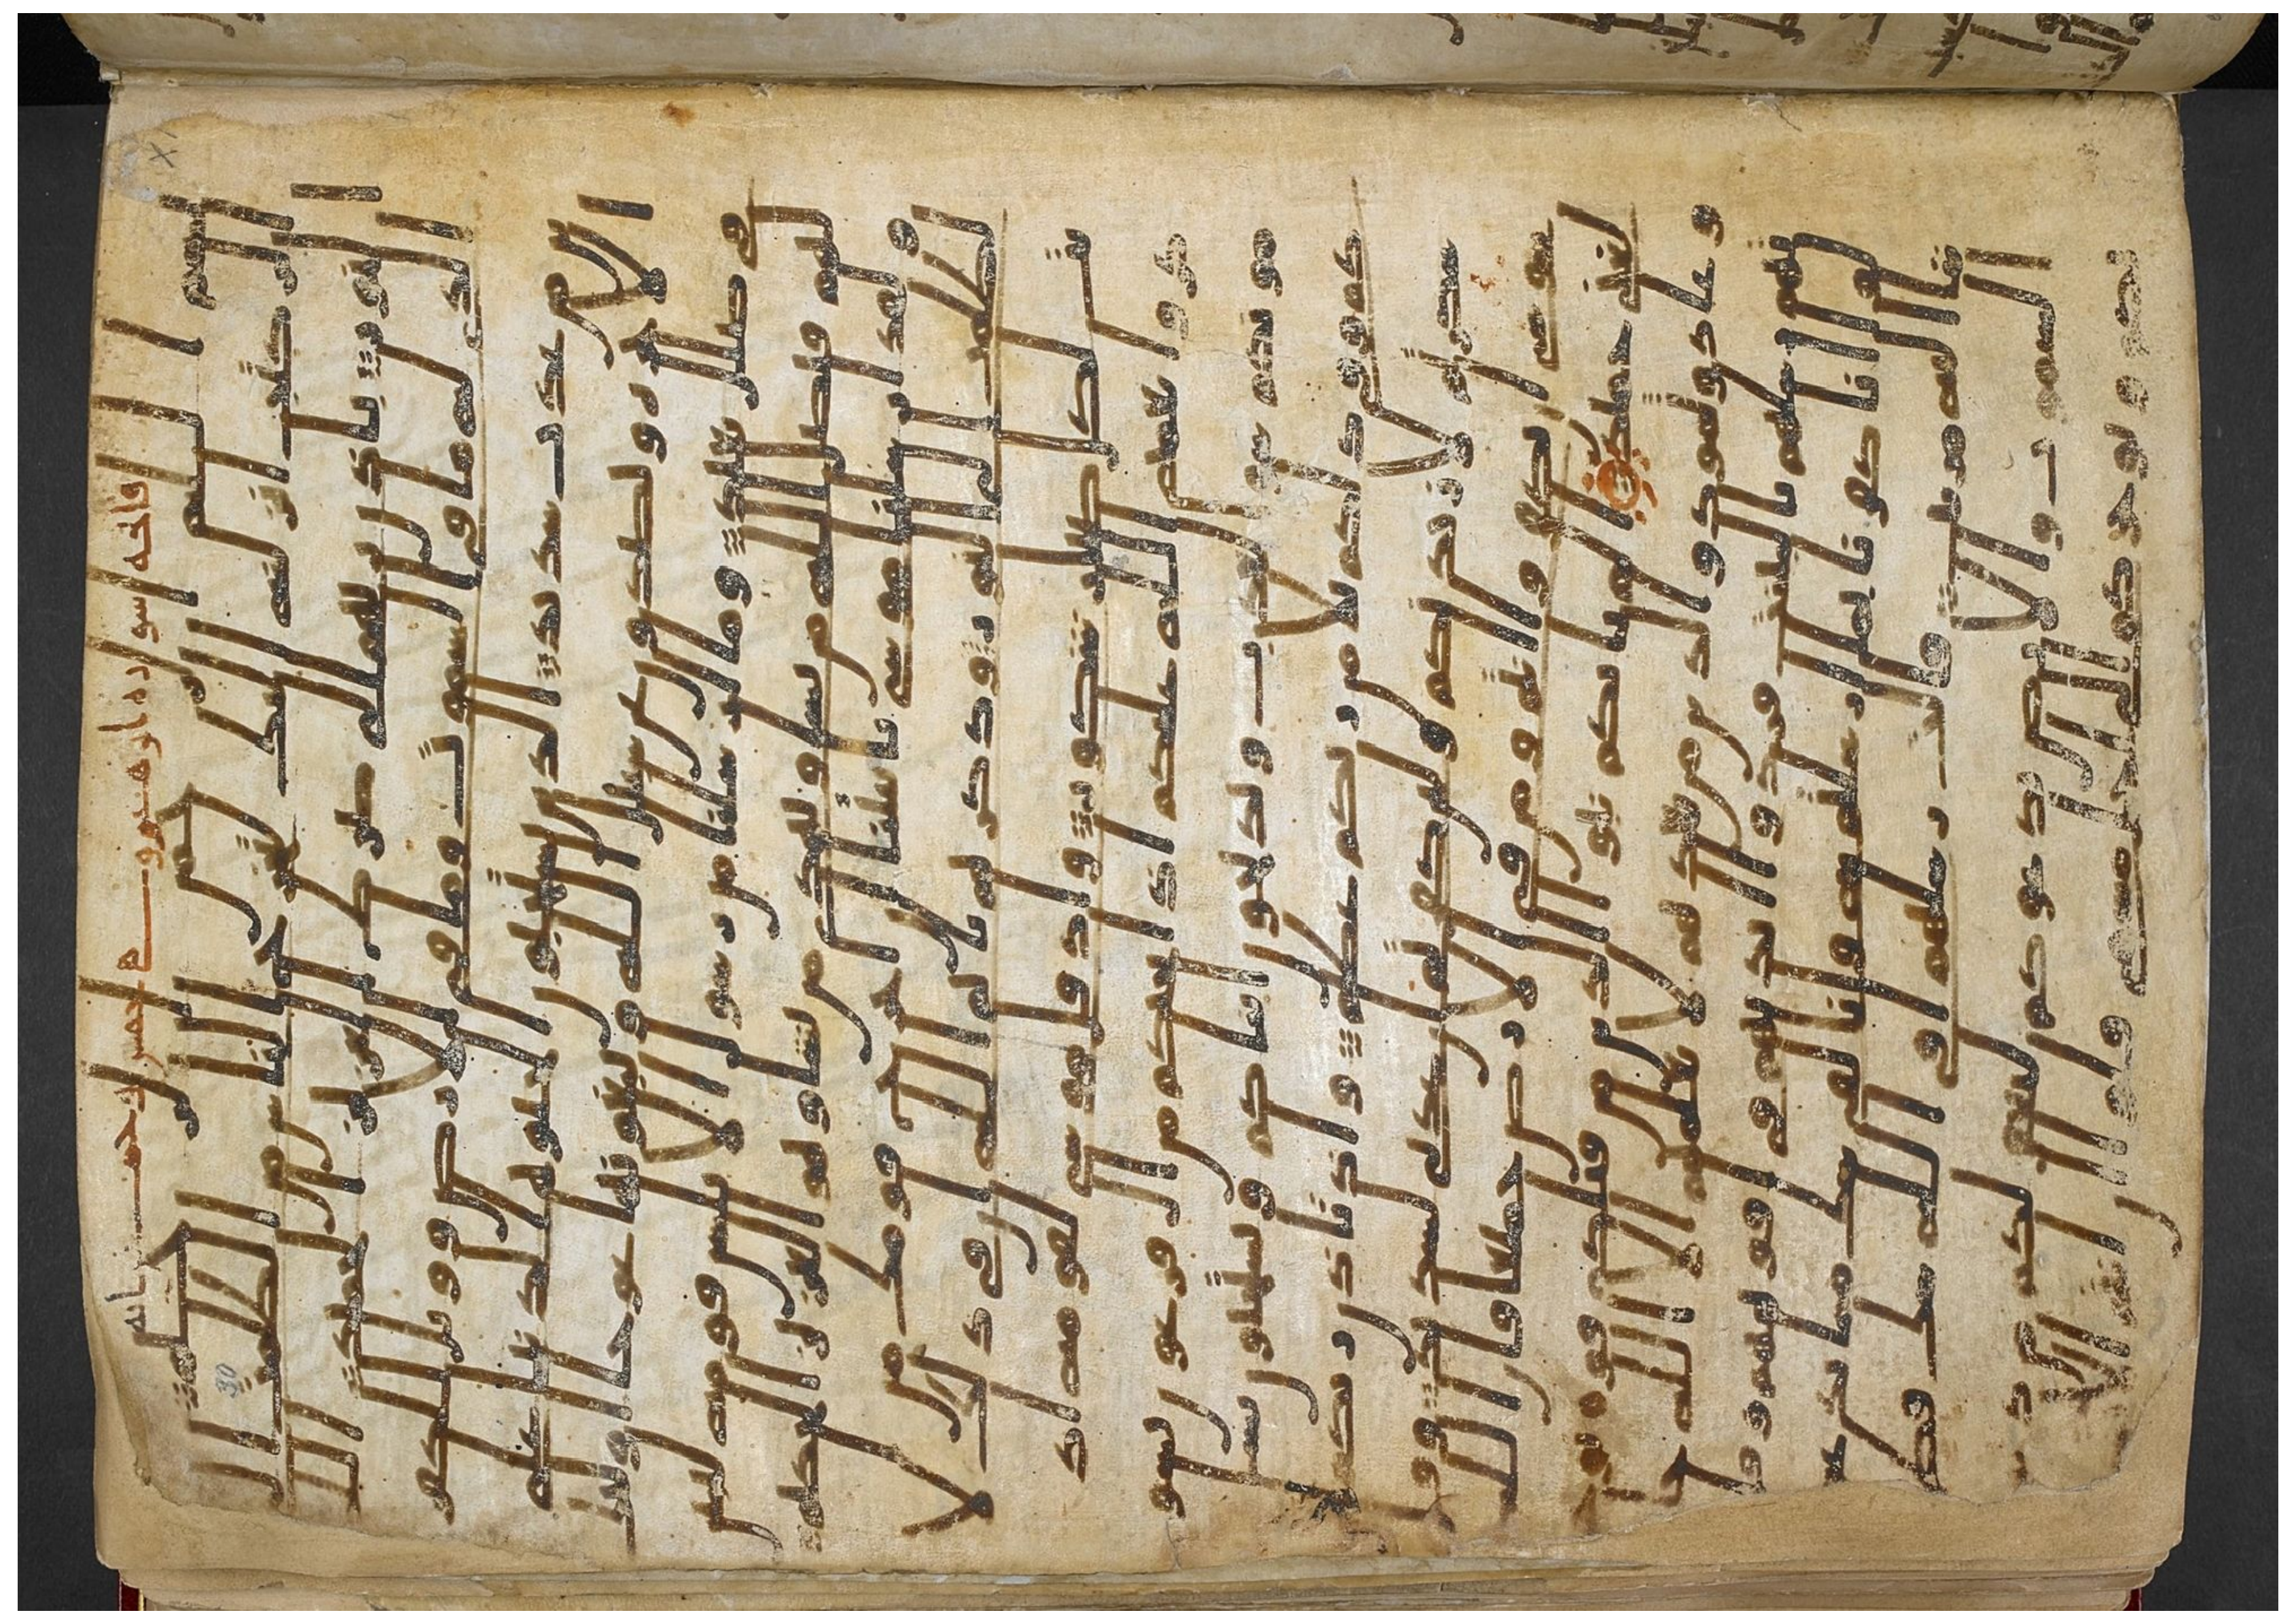 فاتحه سوره ابرهيم
بسم الله الرحمن الرحيم
الر كتب انزلنه اليك لتخرج الناس من الظلمت
الى النور باذن ربهم الى صرط العزيز الحميد
الله الذي له ما في السموت وما في الارض وويل للكفرين
من عذب شديد الذين يستحبون الحيوه الدنيا على
الاخره ويصدون عن سبيل الله ويبغونها عوجا اولئك
في ضلل بعيد وما ارسلنا من رسول الا بلسن قومه ليبين
لهم فيضل الله من يشا ويهدي من يشا وهو العزيز الحكيم
ولقد ارسلنا موسى بايتنا ان اخرج قومك من
الظلمت الى النور وذكرهم بايم الله ان في ذلك لا
يت لكل صبار شكور واذ قال موسى لقومه اذ
كروا نعمه الله عليكم اذ انجيكم من ال فرعون يسو
مونكم سو العذاب ويذبحون ابناكم ويستحيون نسا
كم وفي ذلكم بلا من ربكم عظيم واذ تاذن ربكم
لئن شكرتم لازيدنكم ولئن كفرتم ان عذابي لشديد وقا
ل موسى ان تكفروا انتم ومن في الارض جميعا فان الله
لغني حميد الم ياتكم نبوا الذين من قبلكم قوم نوح
وعاد وثمود والذين من بعدهم لا يعلمهم الا الله جا
تهم رسلهم بالبينت فردوا ايديهم في افوههم وقا
لوا انا كفرنا بما ارسلتم به وانا لفي شك مما تدعو
ننا اليه مريب قالت رسلهم افي الله شك فطر
السموت والارض يدعوكم ليغفر لكم من ذ
نوبكم ويوخركم الى اجل مسمى قالوا ان انتم الا